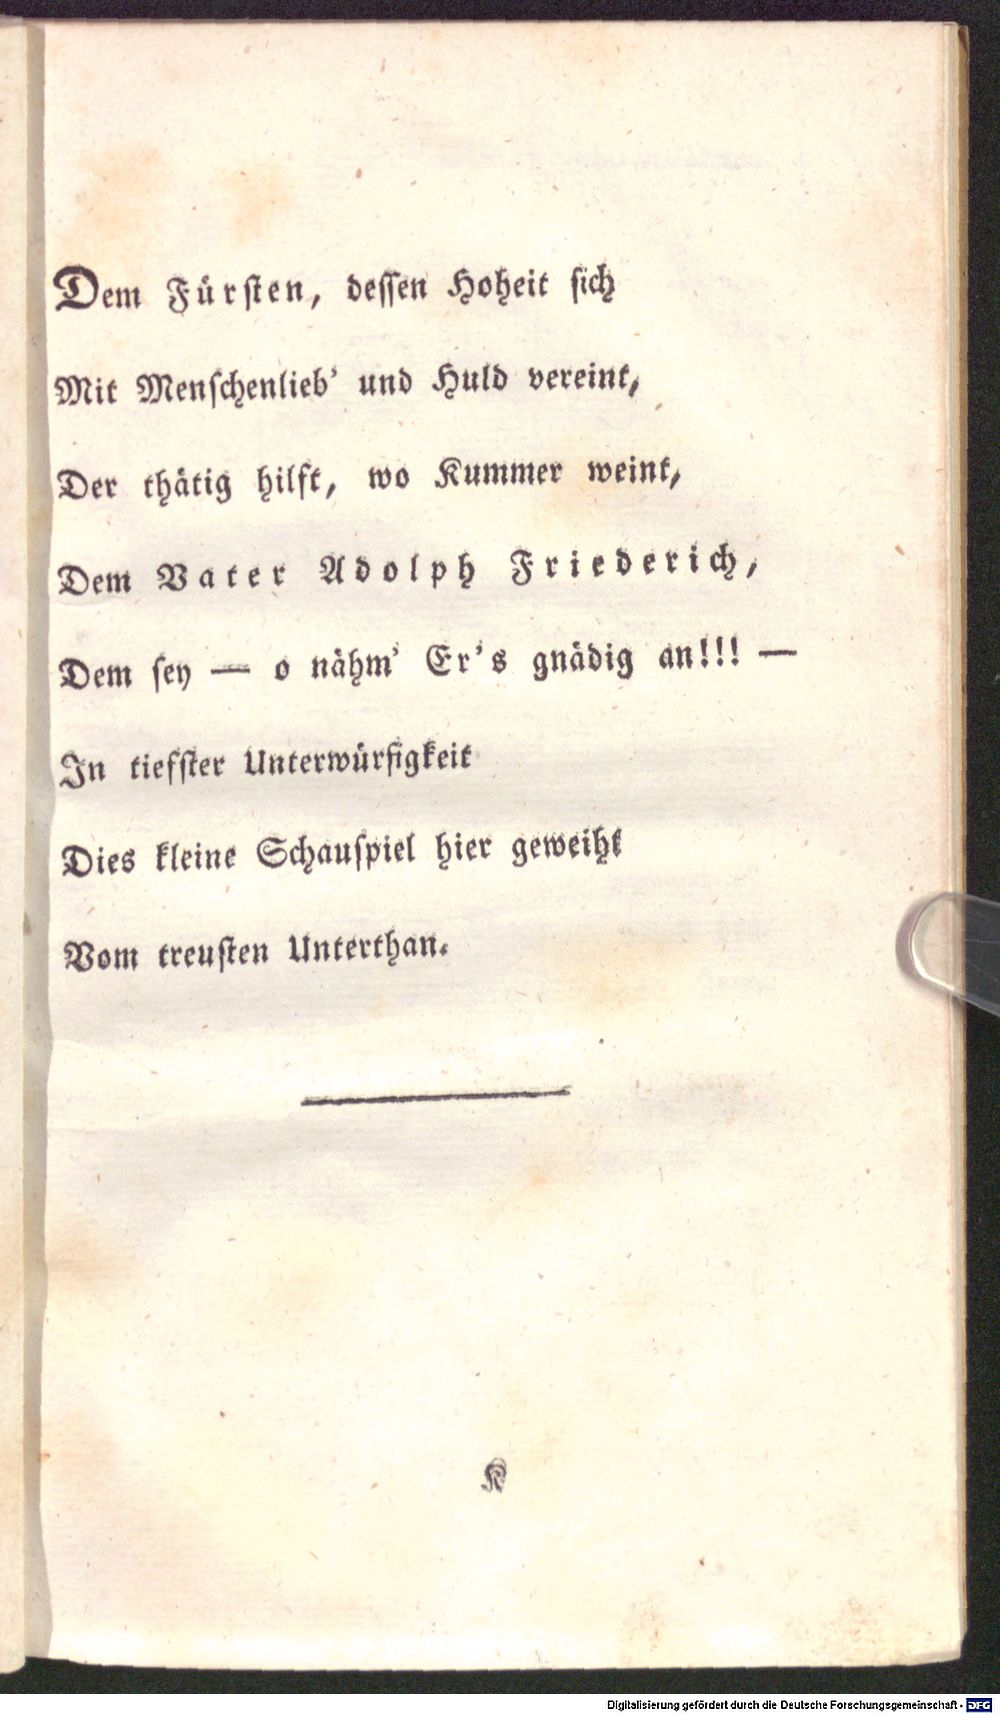 Dem Fürsten, dessen Hoheit sich
Mit Menschenlieb' und Huld vereint,
Der thätig hilft, wo Kummer weint,
Dem Vater Adolph Friederich,
Dem sey — o nähm' Er's gnädig an!!! —
In tiefster Unterwürfigkeit
Dies kleine Schauspiel hier geweiht
Vom treusten Unterthan.
K
Digitalisierung gefördert durch die Deutsche Forschungsgemeinschaft - DFG